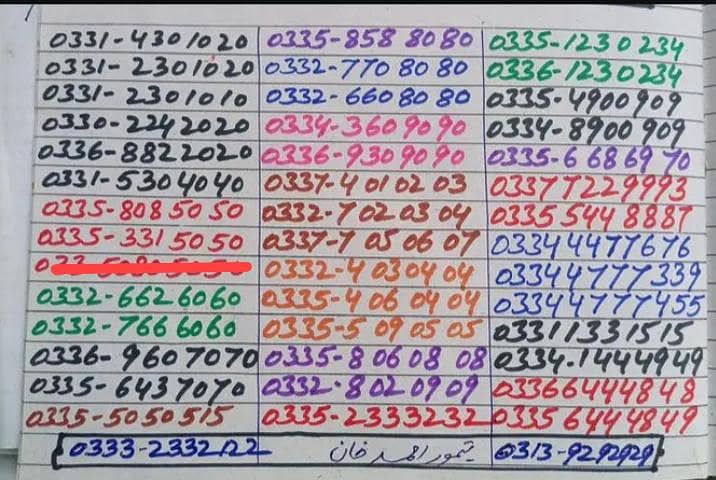 0331-4301020 0335-858 80 80 0335-1230234
0331-2301020 0332-770 80 80 0336-1230234
0331-2301010 0332-660 80 80 0335-4900909
0330-2242020 0334-360 90 90 0334-8900909
0336-8822020 0336-930 90 90 0335-6 68 69 70
0331-5304040 0337-4 01 02 03 03377229993
0335-808 50 50 0332-7 02 03 04 03355448887
0335-331 50 50 0337-7 05 06 07 03344477676
0332-4 03 04 04 03344777339
0332-662 6060 0335-4 06 04 04 03344777455
0332-766 6060 0335-5 09 05 05 03311331515
0336-9607070 0335-8 06 08 08 0334.1444949
0335-6437070 0332.8 02 09 09 03366444848
0335-5050515 0335-2333232 03356444849
0333-2332122 تیمور احمد خان 0313-9292929